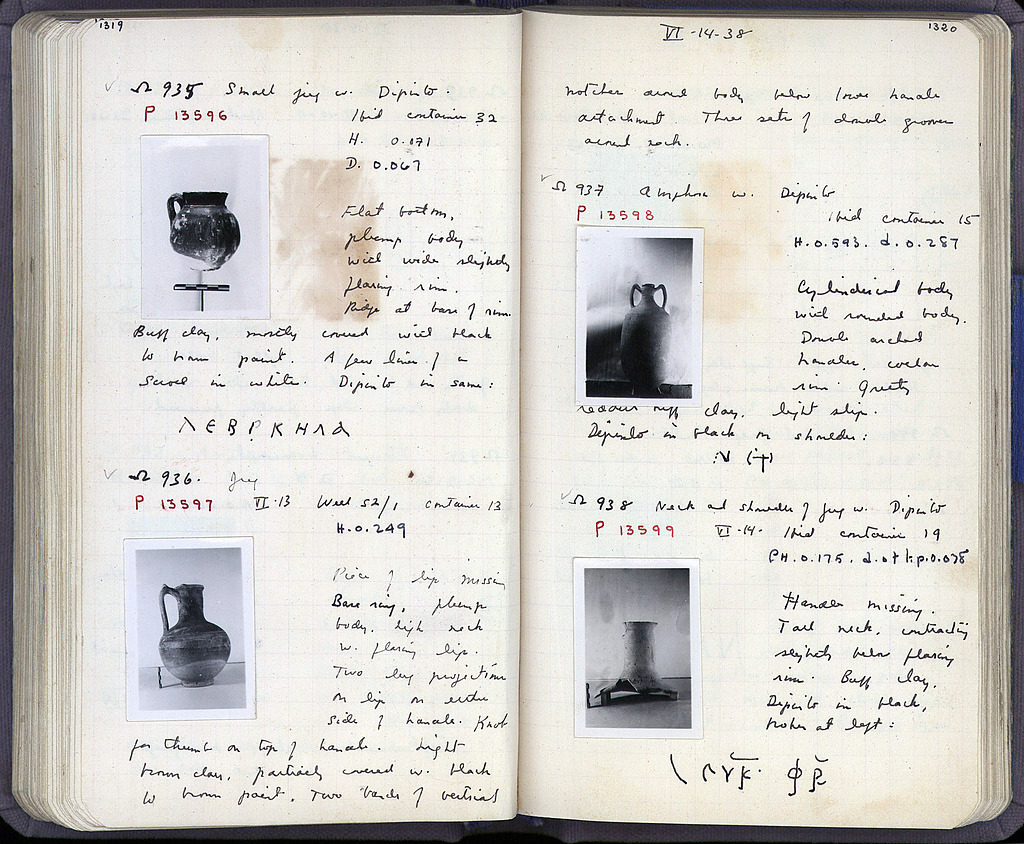 1319
Ω 935 Small jug w. Dipinto.
P 13596
Ibid container 32
H. 0.071
D. 0.067
Flat bottom,
plump body
with wide slightly
flaring rim.
Ridge at base of rim.
Buff clay, mostly covered with black
to brown paint. A few lines of a
scroll in white. Dipinto in same:
Ω 936. Jug
P 13597 VI-13 Well 52/1 container 13
H. 0.249
Piece of lip missing
Base ring, plump
body, high neck
w. flaring lip.
Two lug projections
on lip on either
side of handle. Knob
for thumb on top of handle. Light
brown clay, partially covered w. black
to brown paint. Two bands of vertical
1320
VI-14-38
notches around body below lower handle
attachment. Three sets of double grooves
around neck.
Ω 937 Amphora w. Dipinto
P 13598
Ibid container 15
H. 0.593. d. 0.287
Cylindrical body
with rounded body.
Double arched
handles,
rim. Gritty
reddish buff clay, light slip.
Dipinto in black on shoulder:
Ω 938 Neck and shoulder of jug w. Dipinto
P 13599 VI-14- Ibid container 19
PH. 0.175, d. of lip. 0.078
Handle missing.
Tall neck, contracting
slightly below flaring
rim. Buff clay,
Dipinto in black,
broken at left: